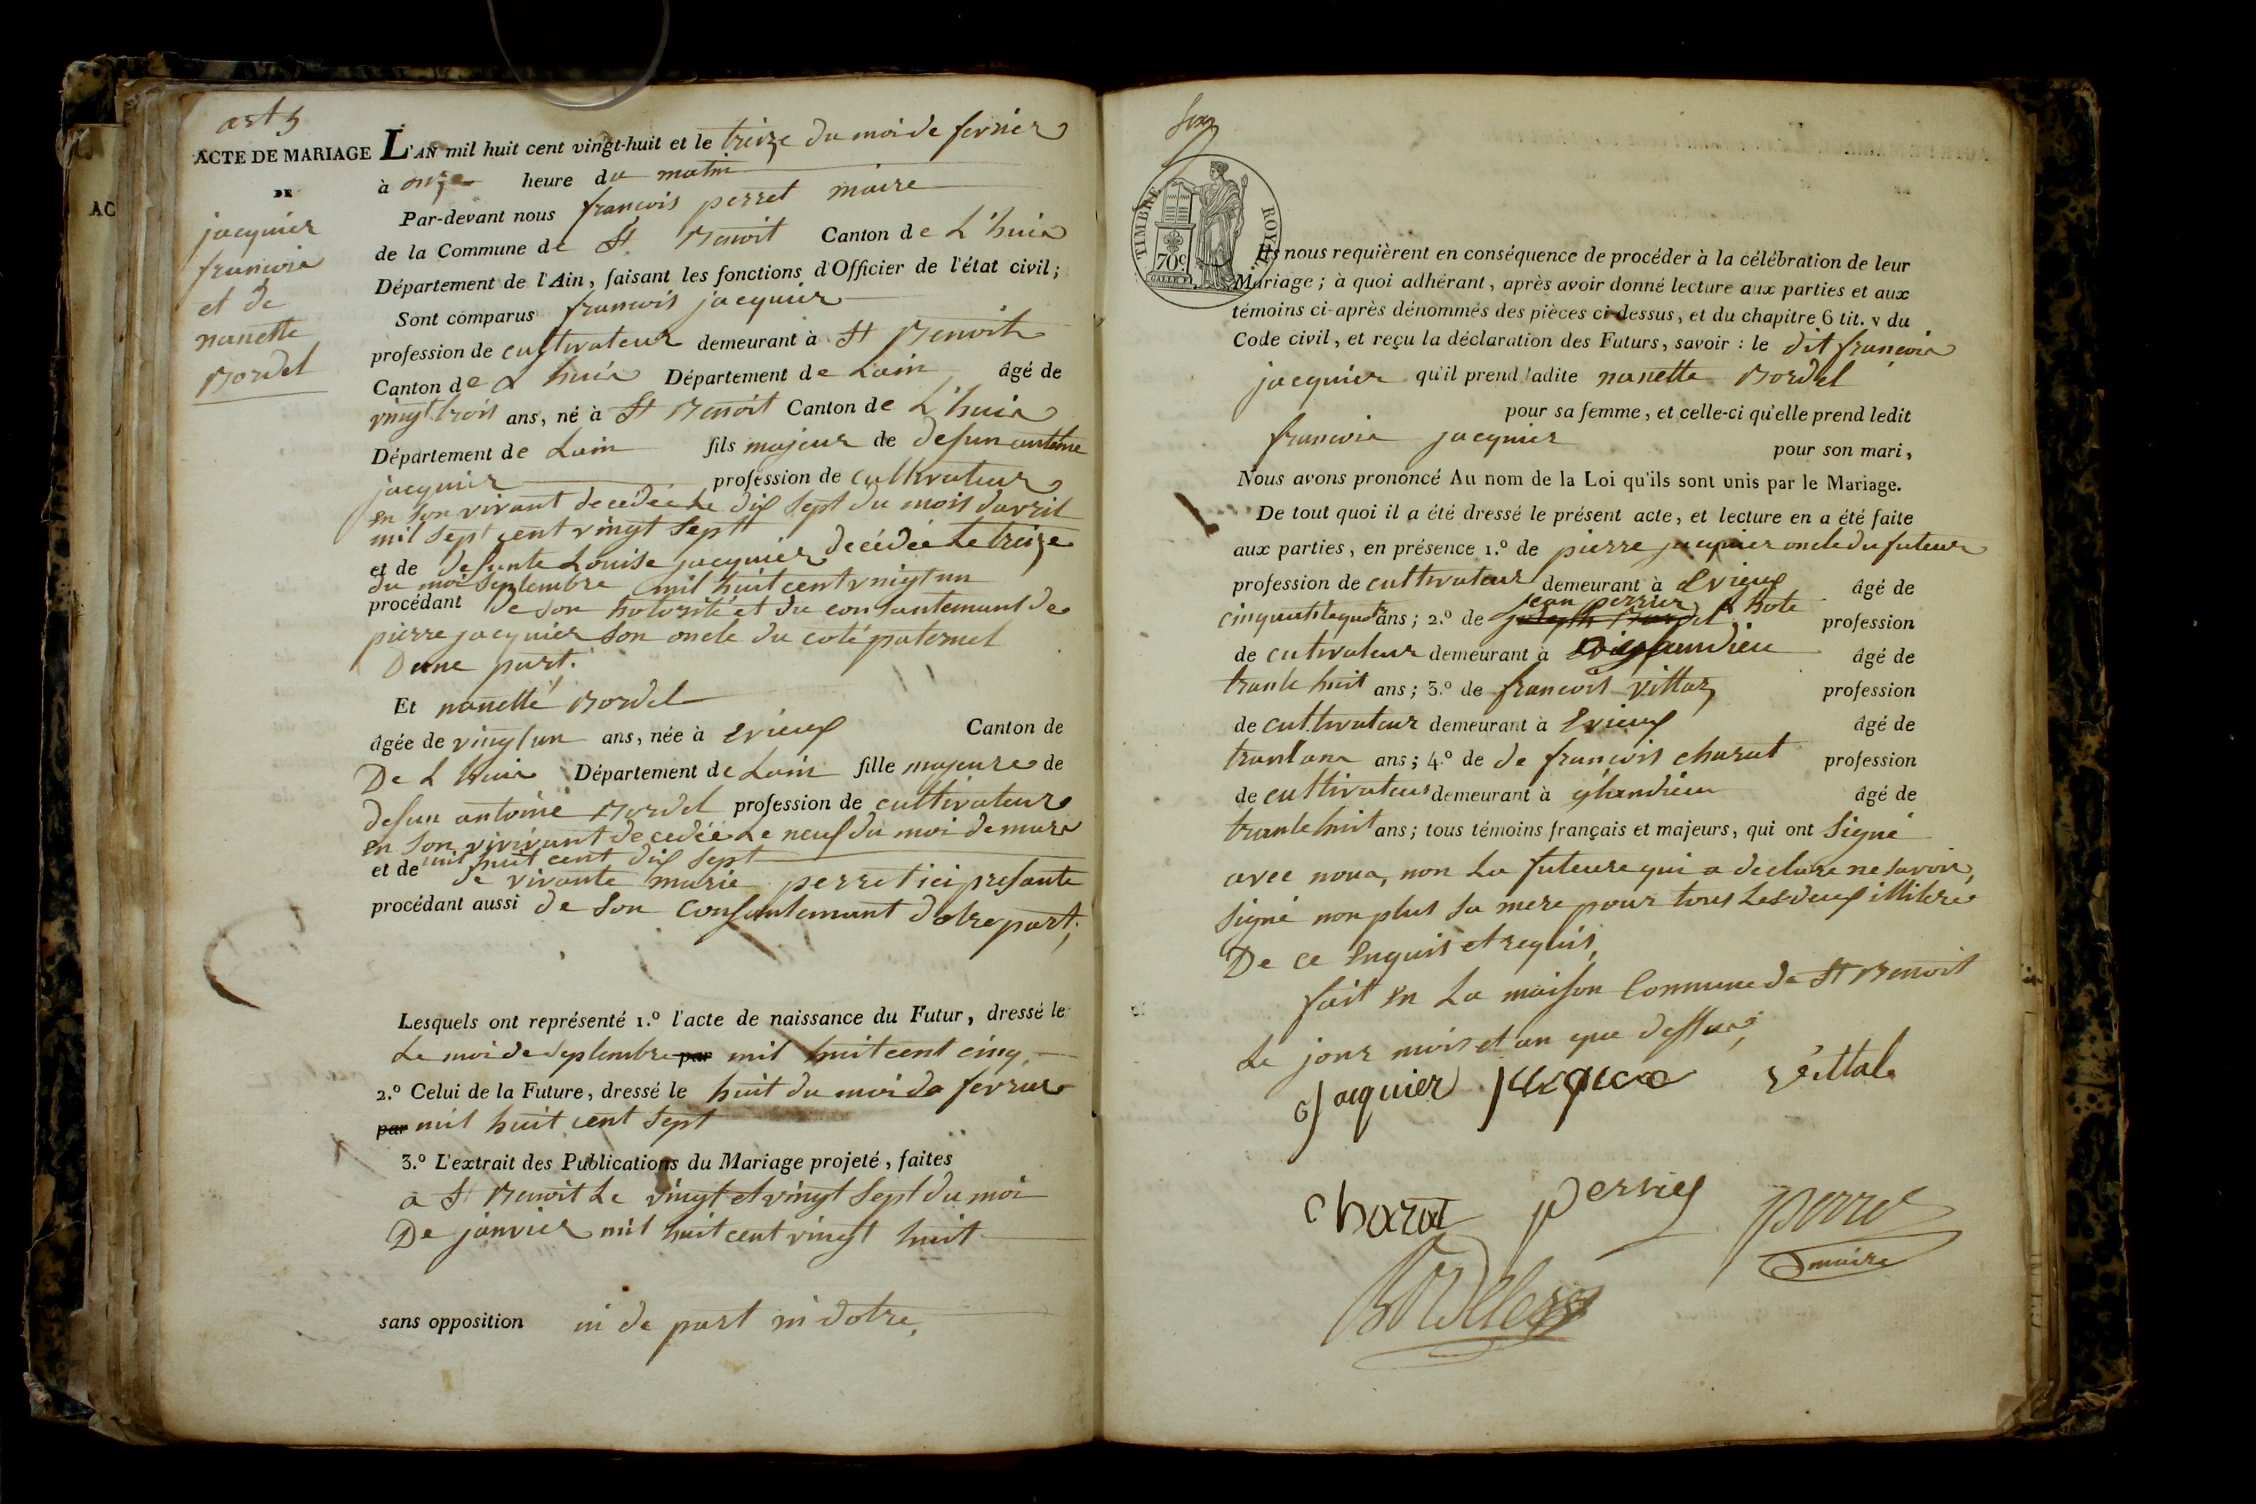 art 5
ACTE DE MARIAGE
DE
jacquier
francois
et de
nanette
Bordel
AC
L'AN mil huit cent vingt-huit et le treize du moi de fevrier
à onze heure du matin
Par-devant nous francois perret maire
de la Commune de St Benoit Canton de L'huis
Département de l'Ain, faisant les fonctions d'Officier de l'état civil;
Sont comparus francois jacquier
profession de cultivateur demeurant à St Benoit
Canton de L huis Département de Lain âgé de
vingt trois ans, né à St Benoit Canton de L'huis
Département de Lain fils majeur de defun antoine
jacquier profession de cultivateur
en son vivant decédée Le dix sept du mois davril
mil sept cent vingt sept
et de defunte Louise jacquier decédée Le treize
du moi septembre mil huit cent vingt un
procédant de son hotorité et du consantemant de
pierre jacquier son oncle du coté paternel
Dune part.
Et nanette Bordel
âgée de vingt un ans, née à Evieux Canton de
De L huis Département de Lain fille majeure de
defun antoine Bordel profession de cultivateur
en son vivivant decedée Le neuf du moi de mars
mil huit cent dix sept
et de de vivante marie perret ici presante
procédant aussi de son consantemant dotre part;
Lesquels ont représenté 1.º l'acte de naissance du Futur, dressé le
Le moi de septembre par mil huit cent cinq
2.º Celui de la Future, dressé le huit du moi de fevrier
par mil huit cent sept
3.º L'extrait des Publications du Mariage projeté, faites
a St Benoit Le vingt et vingt sept du moi
De janvier mil huit cent vingt huit
sans opposition ni de part ni dotre,
TIMBRE ROYAL
70c
Ils nous requièrent en conséquence de procéder à la célébration de leur
Mariage; à quoi adhérant, après avoir donné lecture aux parties et aux
témoins ci-après dénommés des pièces ci-dessus, et du chapitre 6 tit. v du
Code civil, et reçu la déclaration des Futurs, savoir : le dit francois
jacquier qu'il prend ladite nanette Bordel
pour sa femme, et celle-ci qu'elle prend ledit
francois jacquier pour son mari,
Nous avons prononcé Au nom de la Loi qu'ils sont unis par le Mariage.
De tout quoi il a été dressé le présent acte, et lecture en a été faite
aux parties, en présence 1.º de pierre jacquier oncle du futeur
profession de cultivateur demeurant à Evieux âgé de
jean perrier
ans; 2.º de profession
de cutivateur demeurant à âgé de
trante huit ans; 3.º de francois vittoz profession
de cultivateur demeurant à Evieux âgé de
ans; 4.º de de francois charat profession
de cultivateur demeurant à glandieu âgé de
trante huit ans; tous témoins français et majeurs, qui ont signé
avec nous, non La futeure qui a declare ne savoir,
signé non plus sa mere pour tous Les deux illitere
De ce enquis et requis,
fait en La maison Commune de St Benoit
Le jour mois et an que dessus,
jacquier
Charat perrier perret
maire